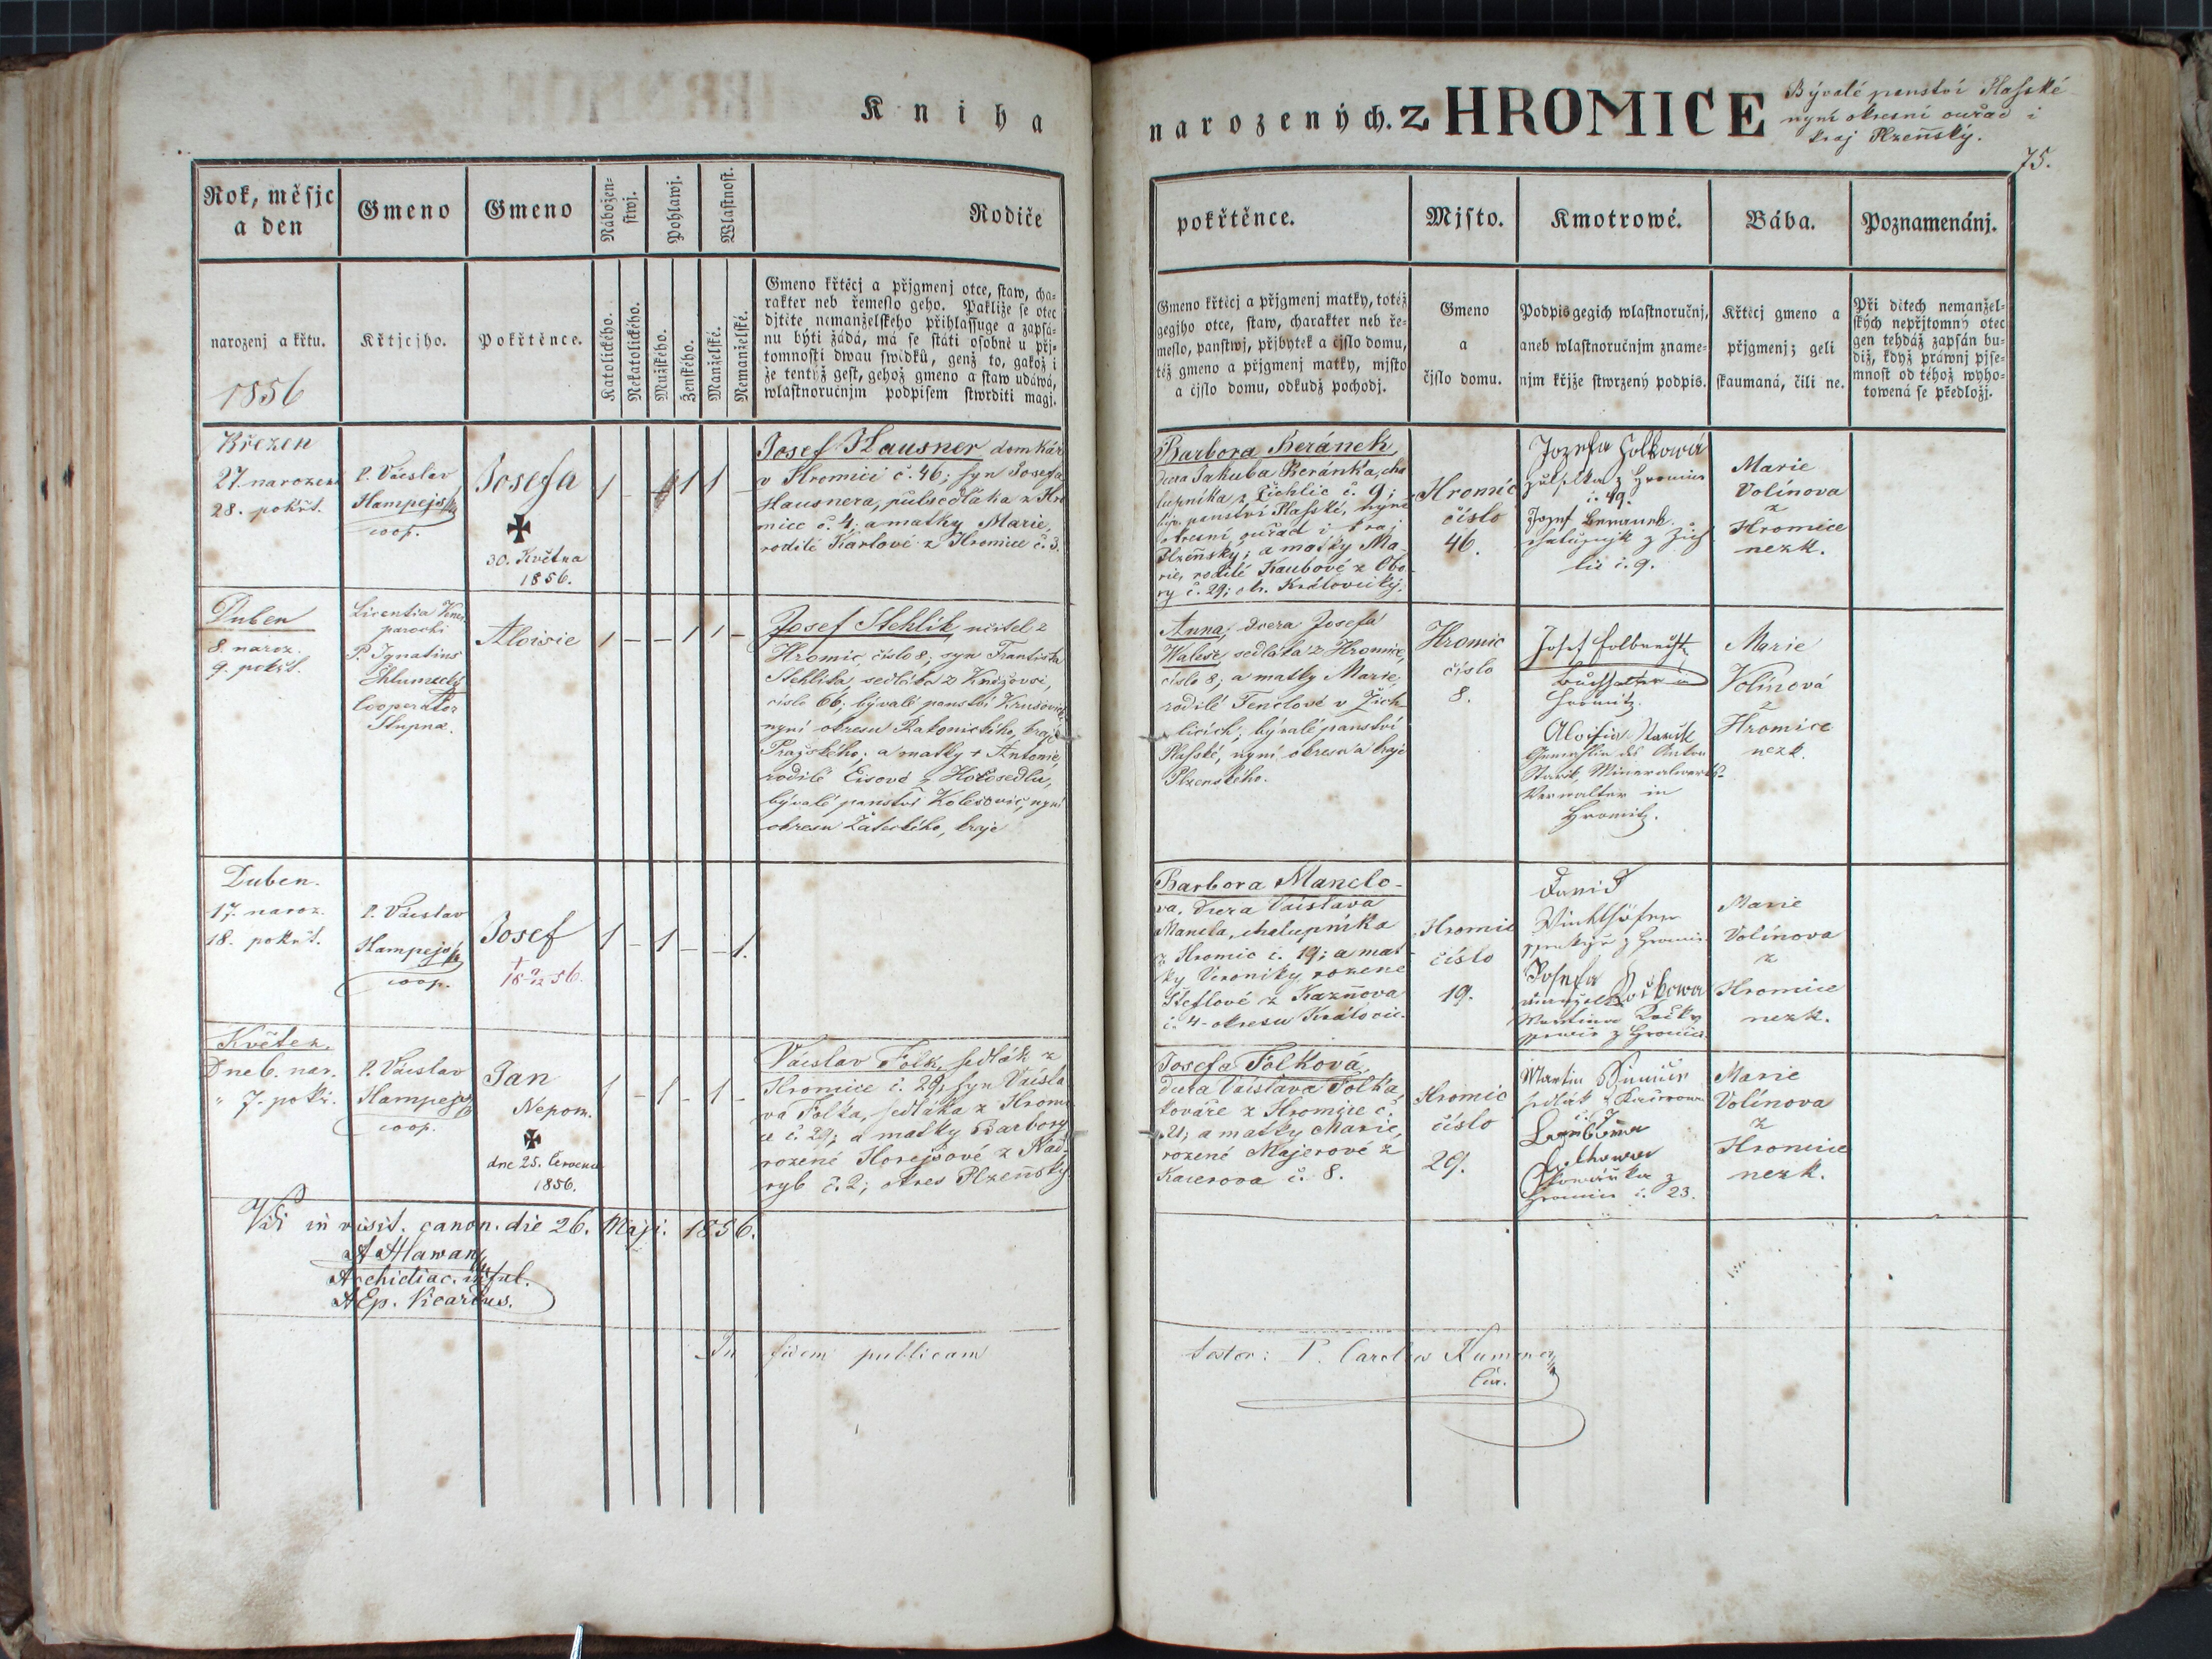 Kniha
narozených. z HROMICE
Bývalé panství Plasské
nyní okresní ouřad i
kraj Plzeňský.
75.
Rok, měsjc
a den
Gmeno
Gmeno
Nábožen-
stwj.
Pohlawj.
Wlastnost.
Rodiče
narozenj a křtu.
1856
Křtjcjho.
Pokřtěnce.
Katolického.
Nekatolického.
Mužského.
Ženského.
Manželské.
Nemanželské.
Gmeno křtěcj a přjgmenj otce, staw, cha-
rakter neb řemeslo geho. Pakliže se otec
djtěte nemanželského přihlassuge a zapsá-
nu býti žádá, má se státi osobně u přj-
tomnosti dwau swědků, genž to, gakož i
že tentýž gest, gehož gmeno a staw udáwá,
wlastnoručnjm podpisem stwrditi magj.
pokřtěnce.
Mjsto.
Kmotrowé.
Bába.
Poznamenánj.
Gmeno křtěcj a přjgmenj matky, totéž
gegjho otce, staw, charakter neb ře-
meslo, panstwj, přjbytek a čjslo domu,
též gmeno a přjgmenj matky, mjsto
a čjslo domu, odkudž pochodj.
Gmeno
a
čjslo domu.
Podpis gegich wlastnoručnj,
aneb wlastnoručnjm zname-
njm křjže stwrzený podpis.
Křtěcj gmeno a
přjgmenj; geli
skaumaná, čili ne.
Při dětech nemanžel-
ských nepřjtomný otec
gen tehdáž zapsán bu-
diž, když práwnj pjse-
mnost od téhož wyho-
towená se předložj.
Březen
27. narozena
28. pokřt.
P. Václav
Hampejs
coop.
Josefa
30. Května
1856.
1 - - 1 1 -
Josef Hausner domkář
v Hromici č. 46; syn Josefa
Hausnera, půlsedláka z Hro
mice č. 4; a matky Marie,
rodilé Karlové z Hromice č. 3.
Barbora Beránek,
dcera Jakuba Beránka, cha
lupníka z Žichlic č. 9;
býv. panství Plasské, nyní
okresní ouřad i kraj
Plzeňský; a matky Ma-
rie, rodilé Kaubové z Obo-
ry č. 29; okr. Královický.
Hromic
číslo
46.
Jozefa Folkowá
z Hromice
č. 49.
Jozef Beranek
chalupnjk z Žich
lic č. 9.
Marie
Volínova
z
Hromice
nezk.
Duben
8. naroz.
9. pokřt.
Licentia
parochi
P. Ignatius
Chlumecký
Cooperator
Stupna.
Aloisie
1 - - 1 1 -
Josef Stehlík, učitel z
Hromic, číslo 8; syn Františka
Stehlíka sedláka z Kněževsi,
číslo 66; bývalé panství Krušovické
nyní okresu Rakonického, kraje
Pražského; a matky + Antonie,
rodilé Eisové z Hořosedlu,
bývalé panství Kolešovic, nyní
okresu Žateckého, kraje
Anna, dcera Josefa
Waleše, sedláka z Hromice,
číslo 8; a matky Marie,
rodilé Tenclové v Žich-
licích, bývalé panství
Plasské, nyní okresu a kraje
Plzenského.
Hromic
číslo
8.
Josef
Buchhalter in
Hromitz.
Aloisia Starik
Gemahlin des Anton
Starik, Mineralwerks
Verwalter in
Hromitz.
Marie
Volínová
z
Hromice
nezk.
Duben.
17. naroz.
18. pokřt.
P. Václav
Hampejs
coop.
Josef
†
1 - 1 - - 1.
Barbora Manclo-
va, dcera Václava
Mancla, chalupníka
z Hromic č. 19; a mat-
ky Veroniky rozené
Šteflové z Kazňova
č. 4 okresu Královic.
Hromic
číslo
19.
David
z Hromic
Josefa
manželka
Martina
z Hromice
Marie
Volínova
z
Hromice
nezk.
Květen.
Dne 6. nar.
" 7. pokř.
P. Václav
Hampejs
coop.
Jan
Nepom.
dne 25. Července
1856.
1 - 1 - 1 -
Václav Folk, sedlák z
Hromice č. 29; syn Václa-
va Folka, sedláka z Hromi
ce č. 29; a matky Barbory
rozené Horejšové z Nad-
ryb č. 2; okres Plzeňský.
Josefa Folková,
dcera Václava Folka,
kováře z Hromice č.
21; a matky Marie,
rozené Majerové z
Kacerova č. 8.
Hromic
číslo
29.
Martin
sedlák z
kowářka z
Hromice č. 23.
Marie
Volínova
z
Hromice
nezk.
Vidi in visit. canon. die 26. Maji. 1856.
A Hlawan
Archidiac. inful.
AEp. Vicarius.
In fidem publicam
testor: P. Carolus
Cur.